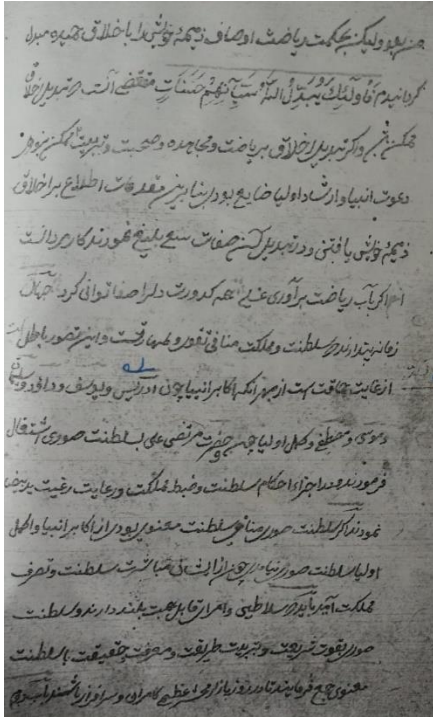 من بود ولیکن بحکمت ریاضت اوصاف ذمیمهٔ خویش را باخلاق حمیده مبدل
کردانیدم فَأُولَٰئِكَ يُبَدِّلُ اللَّهُ سَيِّئَاتِهِمْ حَسَنَاتٍ مقتضی آنست که تبدیل اخلاق
ممکن باشد و اکر تبدیل اخلاق بریاضت و مجاهده و صحبت و تربیت ممکن نبودی
دعوت انبیا و ارشاد اولیا ضایع بودی بنابرین مقدمات اطلاع بر اخلاق
ذمیمهٔ خویش یافتن و در تبدیل آن صفات سعی بلیغ نمودن کار مردانست
اکر بآب ریاضت برآوری غسلی همه کدورت دلرا صفا توانی کرد جهال
زمانه پندارند که سلطنت و مملکت منافی تقوی و طهارتست و این تصور باطل
از غایت حماقت است از بهر آنکه اکابر انبیا چون ادریس و یوسف و داود و سلیمان
و موسی و مصطفی و کمل اولیا چون حضرت مرتضی علی بسلطنت صوری اشتغال
فرمودند و در اجراء احکام سلطنت و ضبط مملکت و رعایت رعیت
نمودند اکر سلطنت صوری منافی سلطنت معنوی بودی از اکابر انبیا و اکمل
اولیا سلطنت صوری نیامدی چون از ایشان مباشرت سلطنت و تصرف
مملکت آمد باید که سلاطین و امرای قابل همت بلند دارند و سلطنت
صوری بقوت شریعت و تربیت طریقت و معرفت حقیقت با سلطنت
معنوی جمع فرمایند تا در روز بازار محشر اعظم کامران و سرافراز باشند